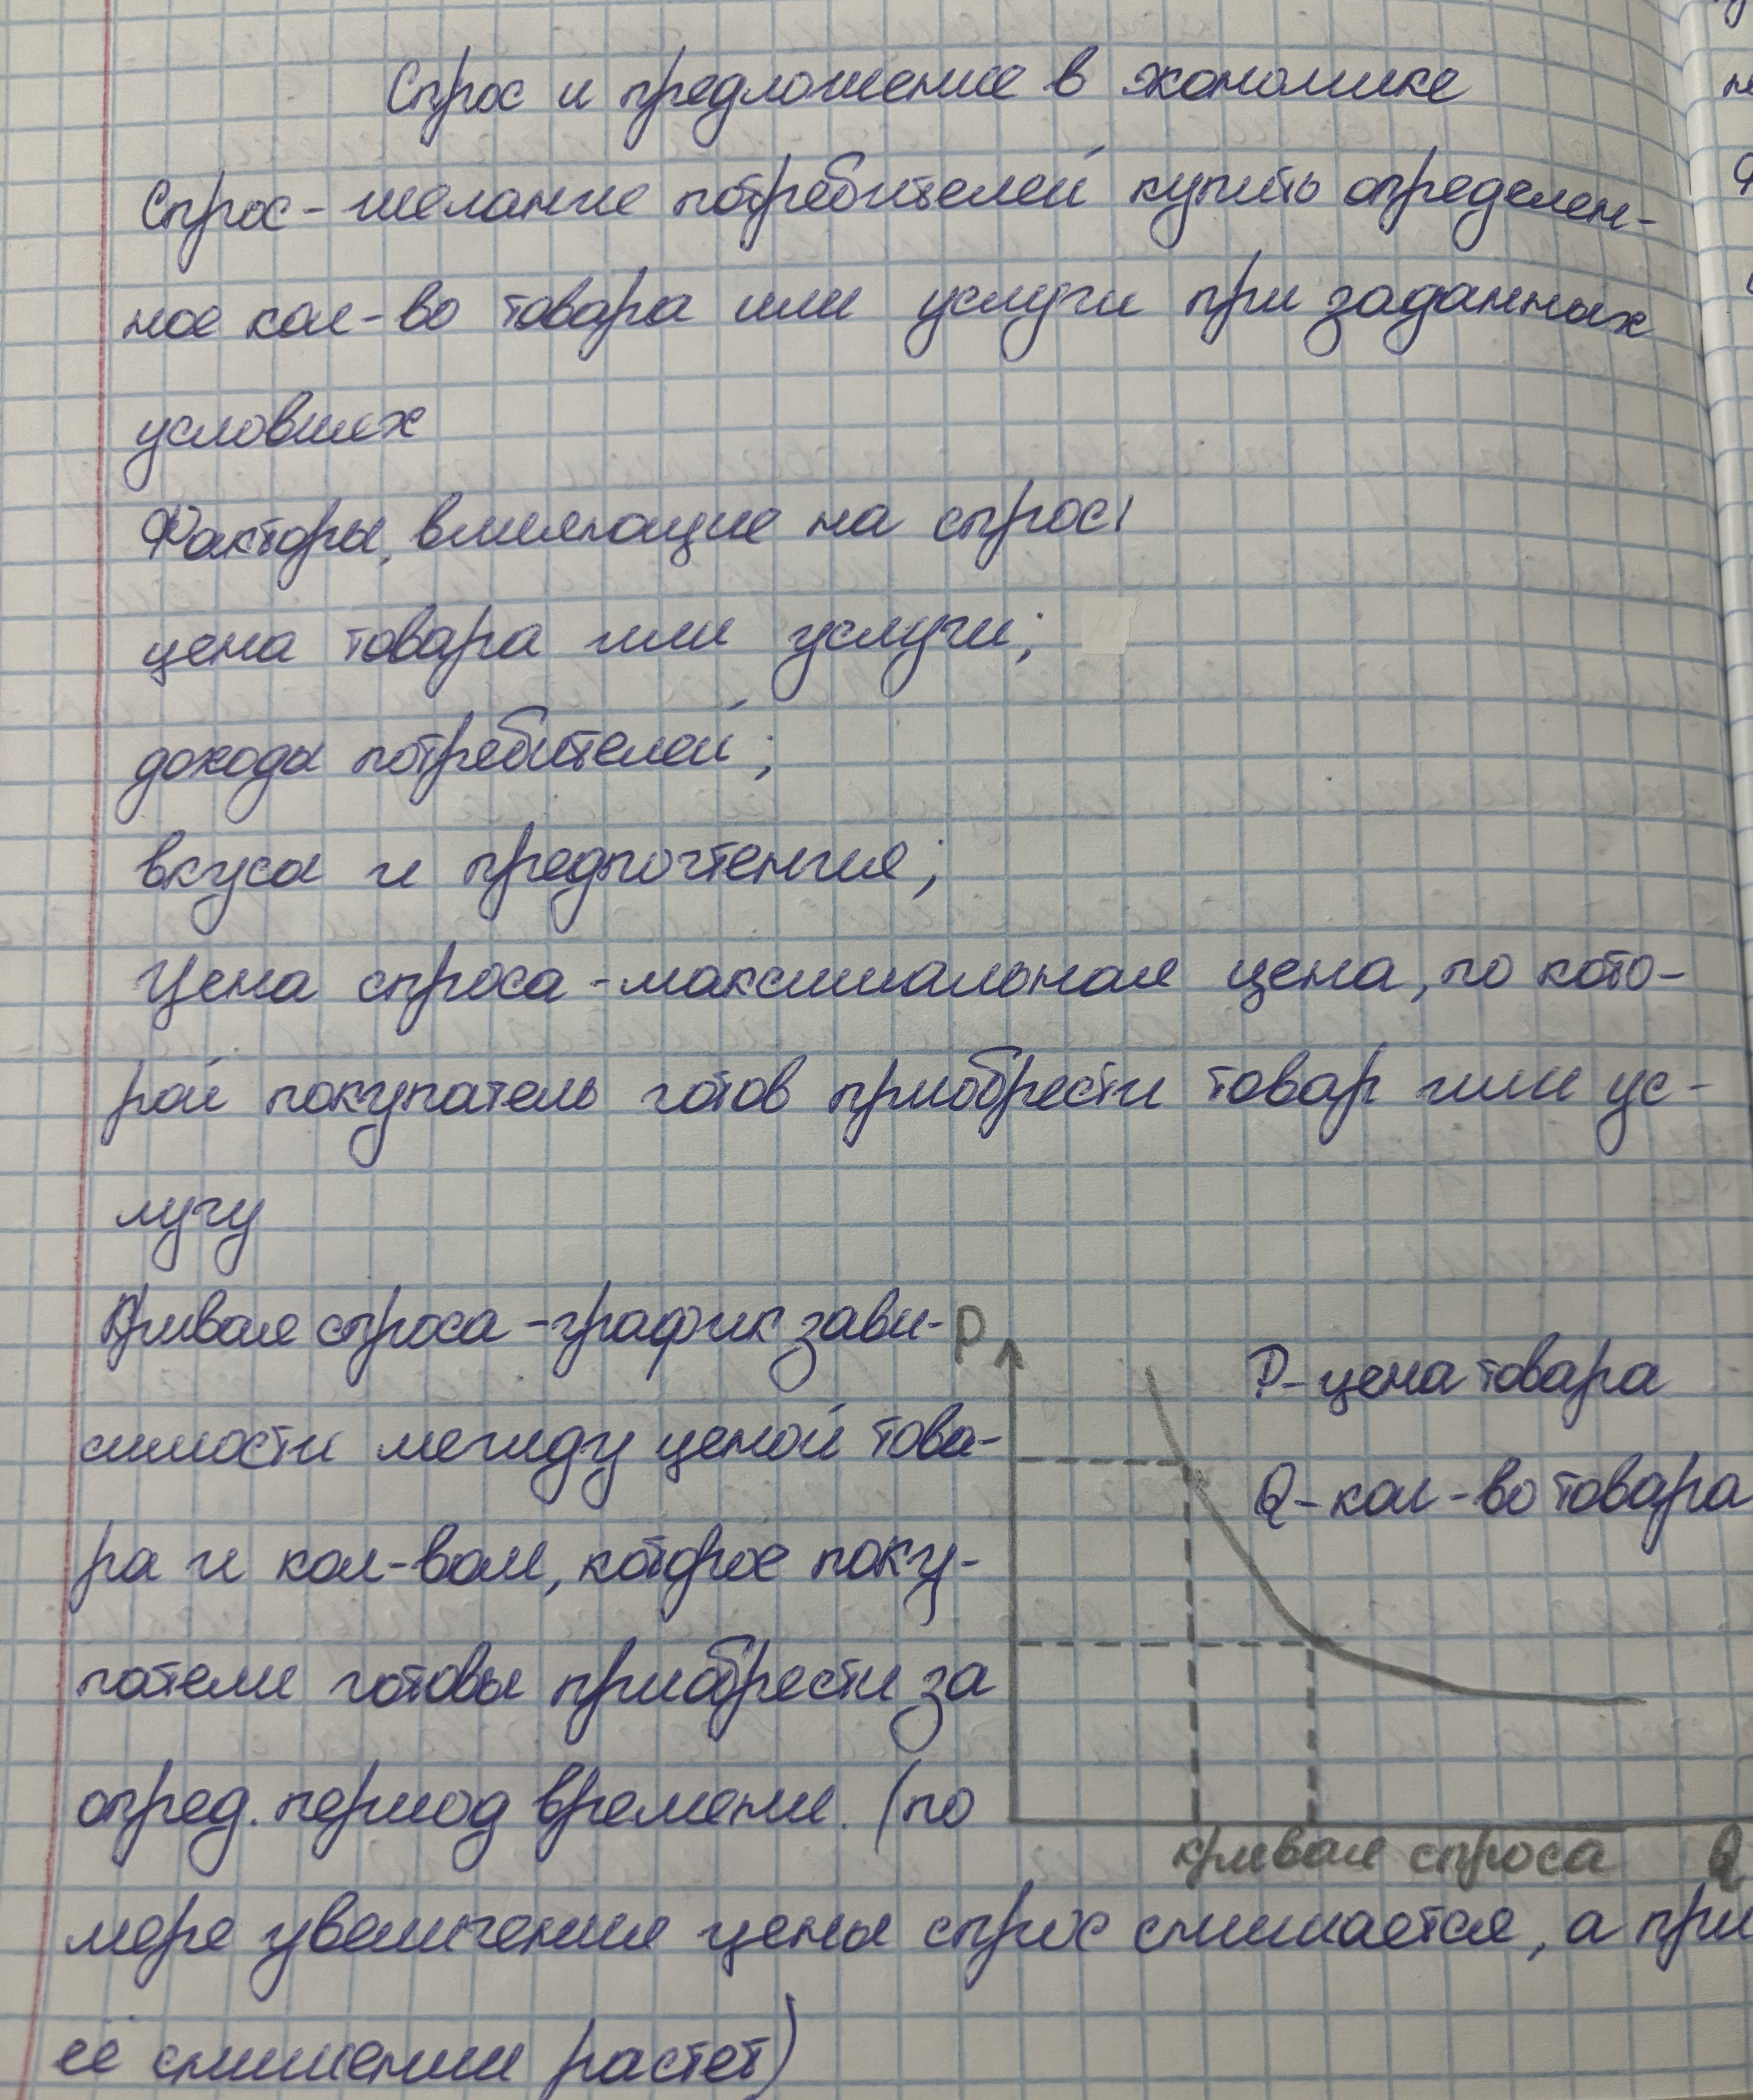 Спрос и предложение в экономике
Спрос - желание потребителей купить определен-
ное кол-во товара или услуги при заданных
условиях
Факторы, влияющие на спрос:
цена товара или услуги;
доходы потребителей;
вкусы и предпочтения;
Цена спроса - максимальная цена, по кото-
рой покупатель готов приобрести товар или ус-
лугу
Кривая спроса - график зави-
симости между ценой това-
ра и кол-вом, которое поку-
патели готовы приобрести за
опред. период времени. (по
мере увеличения цены спрос снижается, а при
её снижении растет)
P
P - цена товара
Q - кол-во товара
кривая спроса
Q